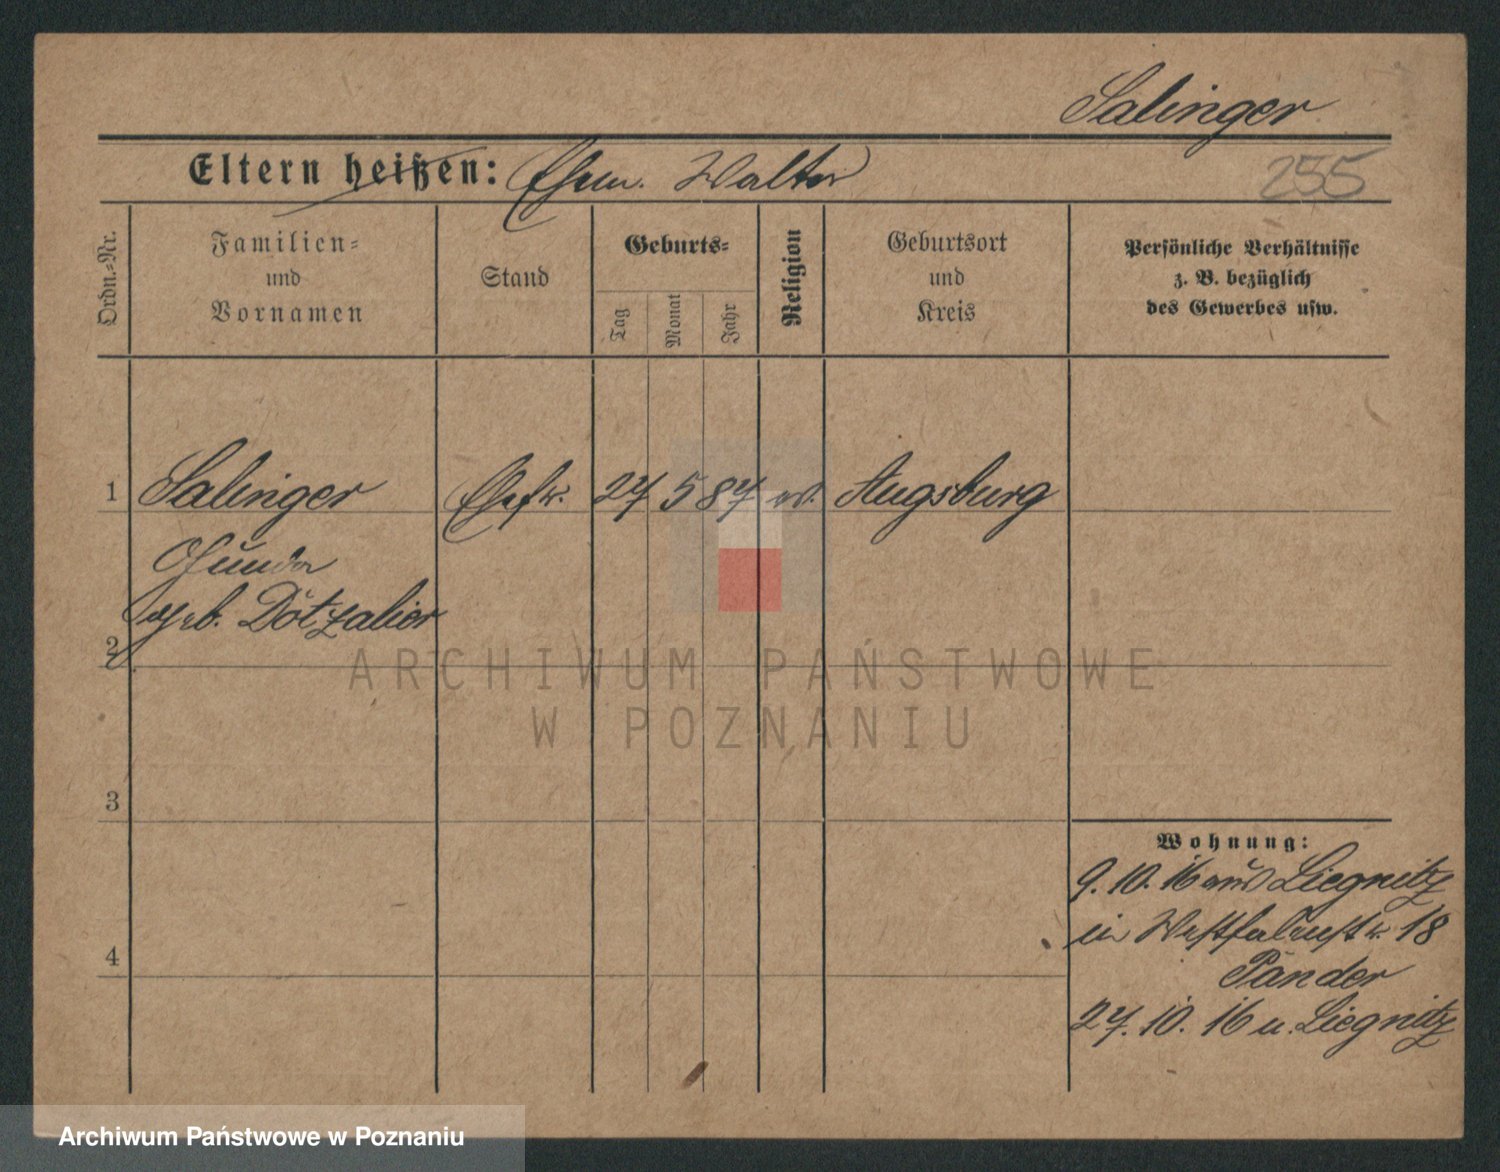 Salinger
Eltern heißen: Ehem. Walter
255
Ordn.-Nr.
Familien-
und
Vornamen
Stand
Geburts-
Tag
Monat
Jahr
Religion
Geburtsort
und
Kreis
Persönliche Verhältnisse
z. B. bezüglich
des Gewerbes usw.
1 Salinger Ehefr. 27 5 87 Augsburg
geb. Dötzalier
2
3
4
Wohnung:
9. 10. 16 aus Liegnitz
in Westfalenstr. 18
Pander
27. 10. 16 n. Liegnitz
ARCHIWUM PAŃSTWOWE
W POZNANIU
Archiwum Państwowe w Poznaniu